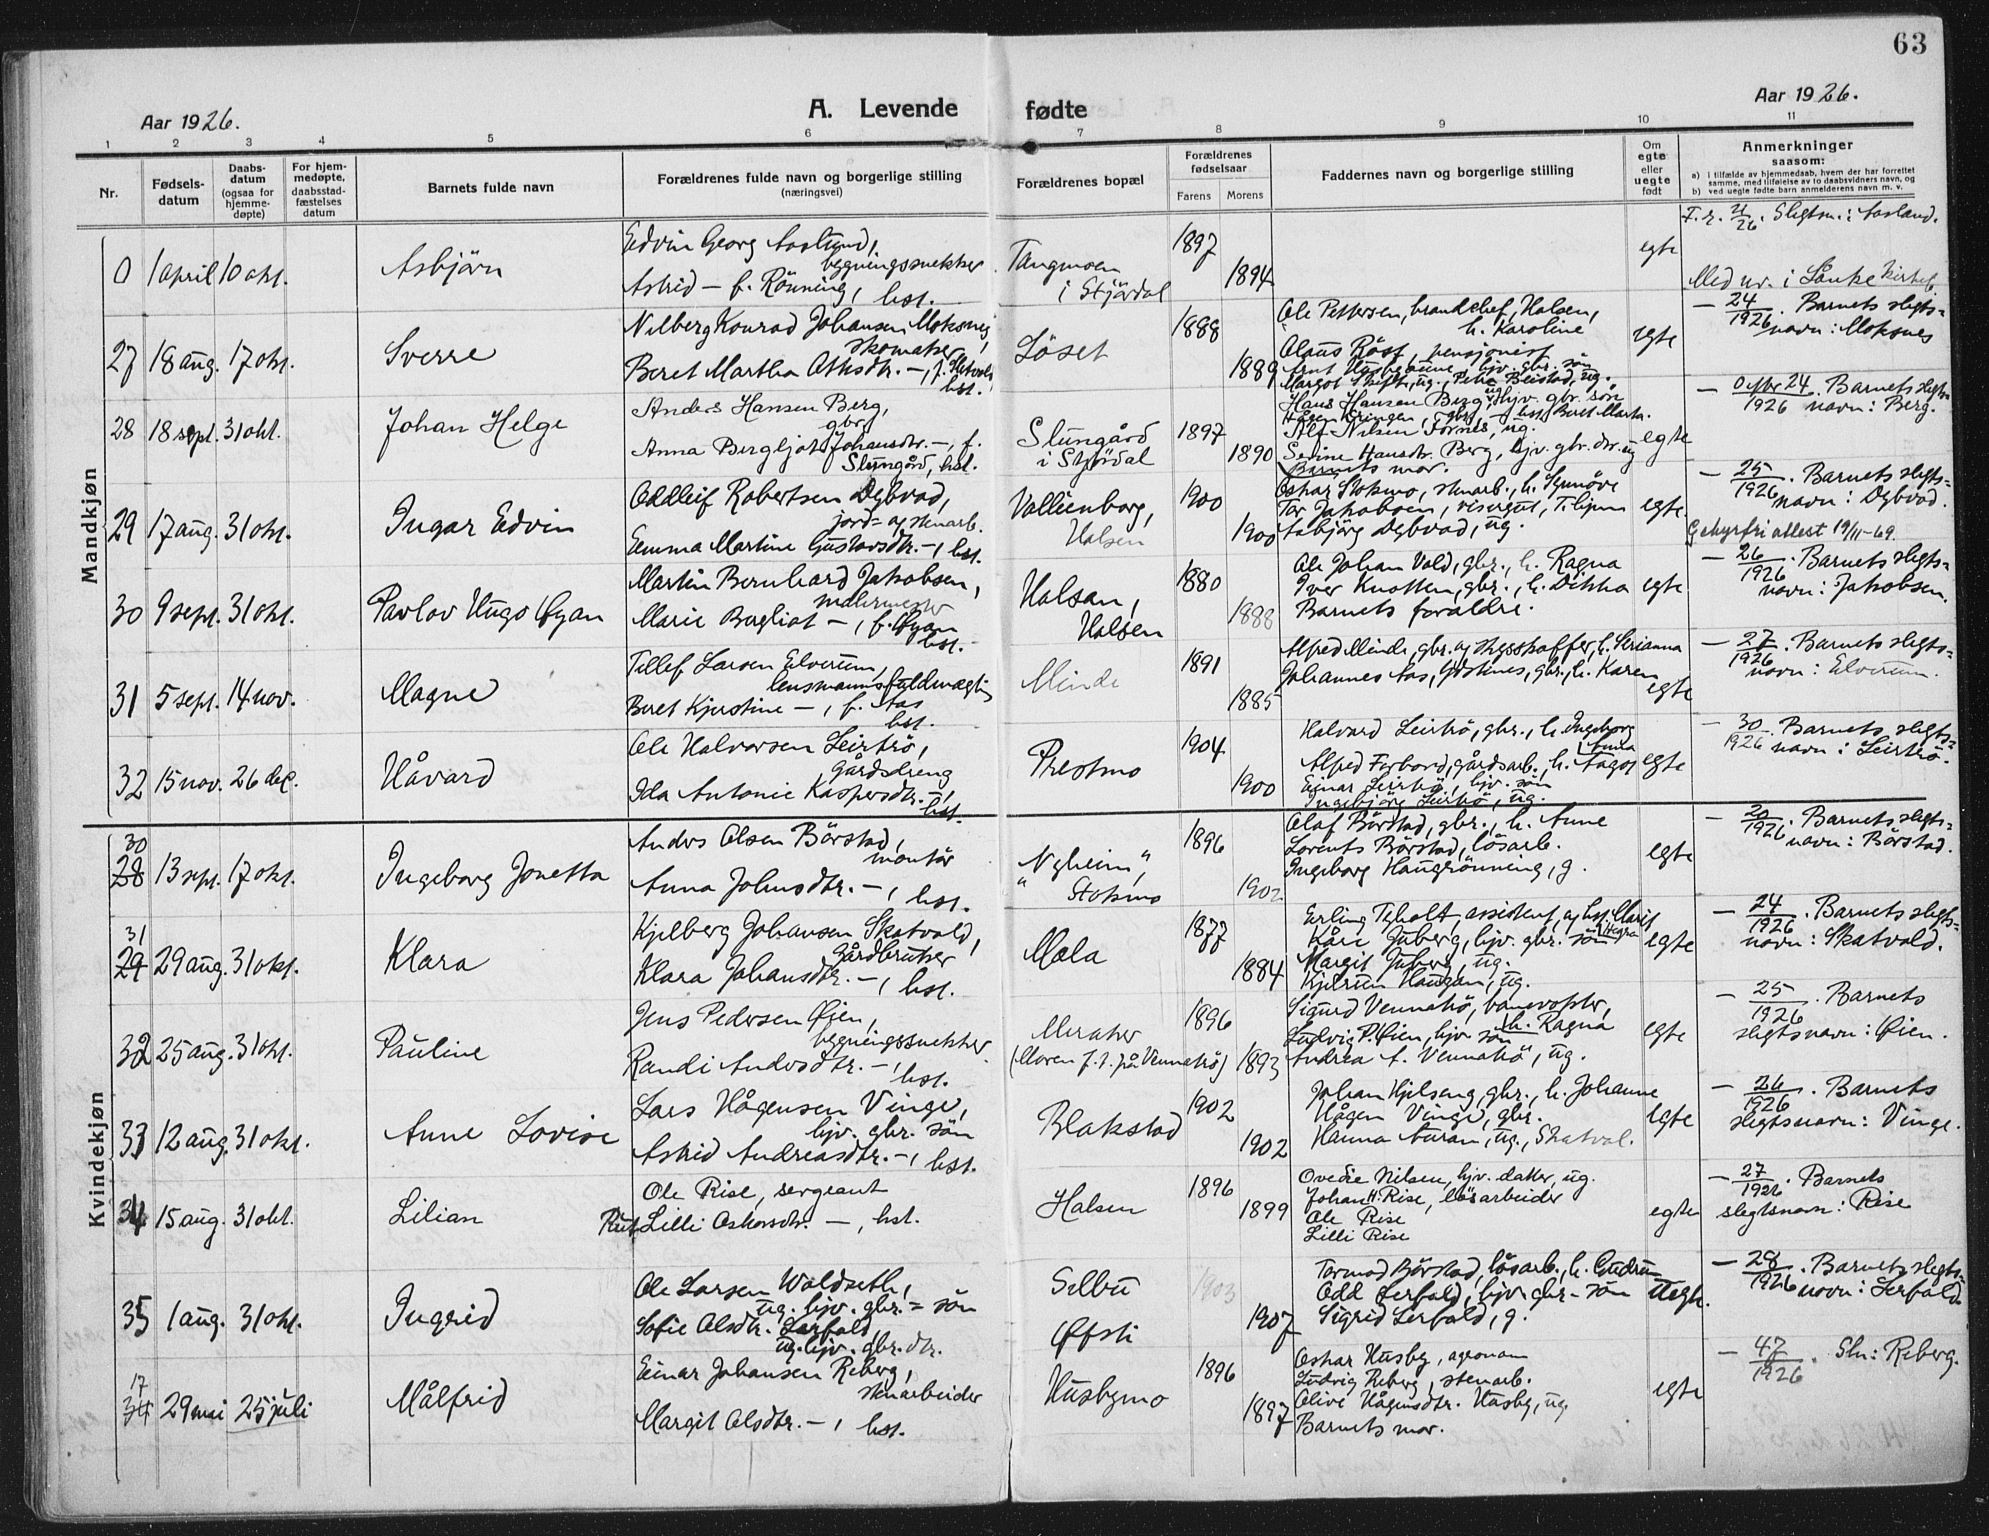 63
Aar 1926.
A. Levende fødte
Aar 1926.
1 2 3 4 5 6 7 8 9 10 11
Nr.
Fødsels-
datum
Daabs-
datum
(ogsaa for
hjemme-
døpte)
For hjem-
medøpte,
daabsstad-
fæstelses
datum
Barnets fulde navn
Forældrenes fulde navn og borgerlige stilling
(næringsvei)
Forældrenes bopæl
Forældrenes
fødselsaar
Farens Morens
Faddernes navn og borgerlige stilling
Om
egte
eller
uegte
født
Anmerkninger
saasom:
a) i tilfælde av hjemmedaab, hvem der har forrettet
samme, med tilføielse av to daabsvidners navn, og
b) ved uegte fødte barn anmelderens navn m. v.
Mandkjøn
0 1 april 10 okt. Asbjörn
Edvin Georg Aasland,
bygningssnekker
Astrid — f. Rönning, hst.
Tangmoen
i Stjördal
1897
1894
egte
F. r. 21/26. Slegtsn.: Aasland.
Med ur. i Lånke kirkeb.
27 18 aug. 17 okt. Sverre
Nilberg Konrad Johansen Moksnes,
skomaker
Beret Martha Othsdtr. —, f.
hst.
Löset
1888
1889
Ole Pettersen, brandchef, Halsen,
h. Karoline
Olaus Röst, pensjonist
Arnt Husbyaune, hjv. gbr. sön
Margot Skift, ug., Petra Beistad, ug.
egte
— 24/1926. Barnets slegts-
navn: Moksnes
28 18 sept. 31 okt. Johan Helge
Anders Hansen Berg,
gbr.
Anna Bergljot Johansdtr. —, f.
Slungård, hst.
Slungård
i Stjördal
1897
1890
Hans Hansen Berg, hjv. gbr. sön
Alf Nilsen Fornes, ug.
Serine Hansdtr. Berg, hjv. gbr. dtr. ug
Barnets mor.
egte
— 24/1926. Barnets slegts-
navn: Berg.
29 17 aug. 31 okt. Ingar Edvin
Oddleif Robertsen Dybvad,
jord- og stenarb.
Emma Martine Gustavsdtr. —, hst.
Vollienborg,
Halsen
1900
1900
Oskar Stokmo, stenarb., h. Synnöve
Tor Jakobsen, visergut, Tiljum
Asbjörg Dybvad, ug.
egte
— 25/1926. Barnets slegts-
navn: Dybvad.
Gebyrfri attest 19/11-69
30 9 sept. 31 okt. Pavlov Hugo Øyan
Martin Bernhard Jakobsen,
malermester
Marie Bergliot —, f. Øyan
hst.
Halsan,
Halsen
1880
1888
Ole Johan Vold, gbr., h. Ragna
Iver Knotten, gbr., h. Dikka
Barnets foraldre.
egte
— 26/1926. Barnets slegts-
navn: Jakobsen.
31 5 sept. 14 nov. Magne
Tellef Larsen Elverum,
lensmannsfuldmægtig
Beret Kjerstine —, f. Aas
hst.
Minde
1891
1885
Alfred Minde, gbr. og skysskaffer, h. Serianna
Johannes Aas, Ydstines, gbr., h. Karen
egte
— 27/1926. Barnets slegts-
navn: Elverum.
32 15 nov. 26 dec. Håvard
Ole Halvorsen Leirtrö,
gårdsdreng
Ida Antonie Kaspersdtr. —,
hst.
Prestmo
1904
1900
Halvard Leirtrö, gbr., h. Ingeborg
Alfred Forbord, gårdsarb., h. Aagot
Einar Leirtrö, hjv. sön
Ingebjörg Leirtrö, ug.
egte
— 30/1926. Barnets slegts-
navn: Leirtrö.
Kvindekjøn
30
28 13 sept. 17 okt. Ingeborg Jonetta
Anders Olsen Börstad,
montör
Anna Johnsdtr. —, hst.
"Nyheim",
Stokmo
1896
1902
Olaf Börstad, gbr., h. Anne
Lorents Börstad, lösarb.
Ingeborg Haugrönning, g.
egte
— 20/1926. Barnets slegts-
navn: Börstad.
31
29 29 aug. 31 okt. Klara
Kjelberg Johansen Skatvold,
gårdbruker
Klara Johansdtr. —, hst.
Mæla
1877
1884
Erling Tyholt, assistent, og hst. Marit
Kåre Juberg, hjv. gbr. sön
Margit Juberg, ug.
Kjelrun Haugan, ug.
egte
— 24/1926. Barnets slegts-
navn: Skatvold.
32 25 aug. 31 okt. Pauline
Jens Pedersen Øien,
bygningssnekker
Randi Andersdtr. —,
hst.
Meraker
(Moren f. t. på Vennatrö)
1896
1893
Sigurd Vennatrö, banevokter,
h. Ragna
Ludvig P. Øien, hjv. sön
Andrea A. Vennatrö, ug.
egte
— 25/1926. Barnets
slegtsnavn: Øien.
33 12 aug. 31 okt. Anne Lovise
Lars Hågensen Vinge,
hjv. gbr. sön
Astrid Andreasdtr. —, hst.
Blakstad
1902
1902
Johan Hjelseng, gbr., h. Johanne
Hågen Vinge, gbr.
Hanna Auran, ug., Skatval.
egte
— 26/1926. Barnets
slegtsnavn: Vinge.
34 15 aug. 31 okt. Lilian
Ole Rise, sergeant
Rut Lilli Oskarsdtr. —, hst.
Halsen
1896
1899
Ovedie Nilsen, hjv. datter, ug.
Johan H. Rise, lösarbeider
Ole Rise
Lilli Rise
egte
— 27/1926. Barnets
slegtsnavn: Rise
35 1 aug. 31 okt. Ingrid
Ole Larsen Woldseth,
ug. hjv. gbr.- sön
Sofie Olsdtr. Lerfald,
ug. hjv. gbr. dtr.
Selbu
Øfsti
1903
1907
Tormod Börstad, lösarb., h. Gudrun
Odd Lerfald, hjv. gbr- sön
Sigrid Lerfald, g.
uegte.
— 28/1926. Barnets slegts-
navn: Lerfald.
17
34 29 mai 25 juli Målfrid
Einar Johansen Reberg,
stenarbeider
Margit Olsdtr. —, hst.
Husbymo
1896
1897
Oskar Husby, agronom
Ludvig Reberg, stenarb.
Olive Hågensdtr. Husby, ug
Barnets mor.
egte
— 47/1926. Sln: Reberg.